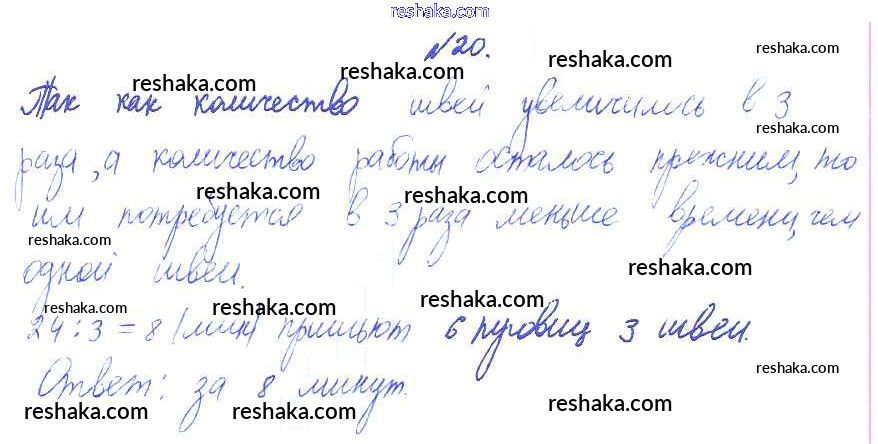 reshaka.com
№20.
reshaka.com reshaka.com reshaka.com reshaka.com
Так как количество швей увеличилось в 3
reshaka.com
раза, а количество работы осталось прежним, то
reshaka.com reshaka.com reshaka.com
им потребуется в 3 раза меньше времени, чем
reshaka.com
одной швеи.
reshaka.com
reshaka.com reshaka.com reshaka.com
24 : 3 = 8 (мин) пришьют 6 пуговиц 3 швеи.
reshaka.com
Ответ: за 8 минут.
reshaka.com reshaka.com reshaka.com reshaka.com